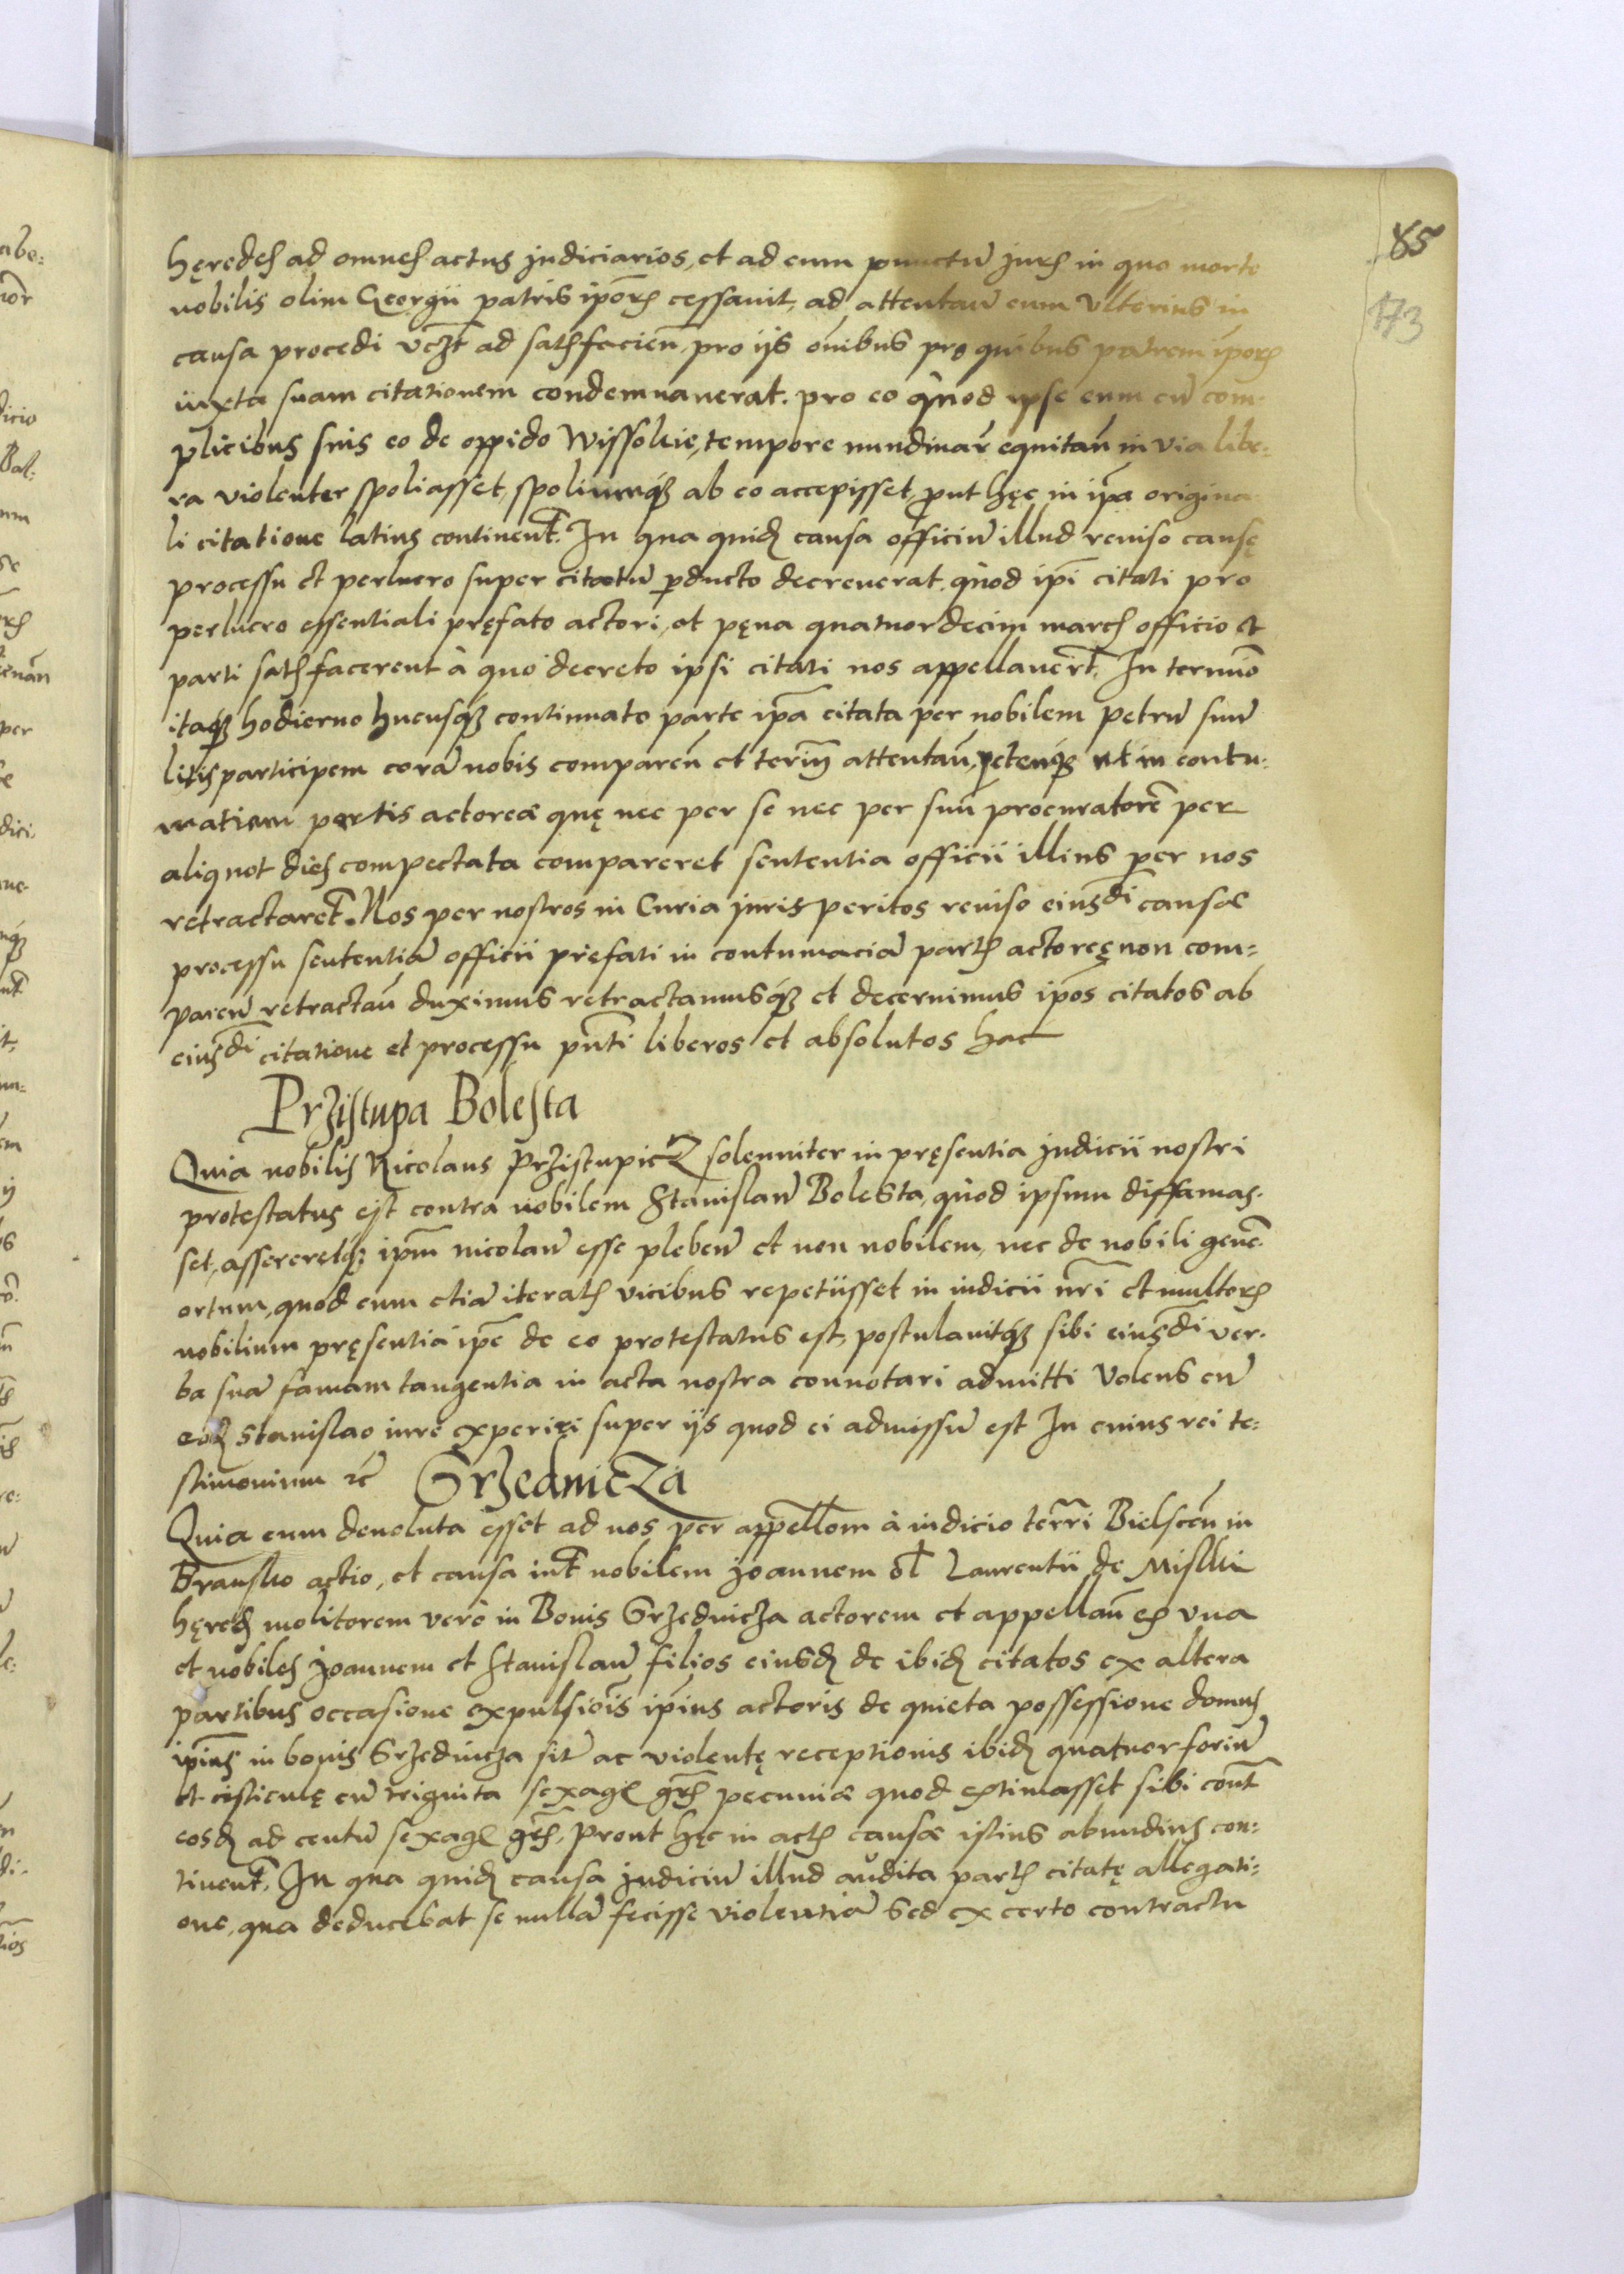 85
173
hęredes ad omnes actus judiciarios, et ad eum punctū juris in quo morte
nobilis olim Georgii patris ipōrum cessavit, ad attentan̄ eum ulterius in
causa procedi vczt ad satisfacien̄. pro iis oīnibus pro quibus patrem ipōrum
iuxta suam citationem condemnaverat. pro eo quòd ipse eum cū com-
plicibus suis eo de oppido Wissokie, tempore nundinar̄ equitan̄ in via libe-
ra violenter spoliasset, spoliumq́ꝫ ab eo accepisset, prout hęc in ip̄a origina-
li citatione latius continent̄. In qua quidꝫ causa officiū illud reviso causę
processu et perlucro super citatū ꝑducto decreverat. quòd ip̄i citati pro
perlucro essentiali pręfato actori, et pęna quatuordecim marcis officio et
parti satisfacerent à quo decreto ipsi citati nos appellaverīt. In termīo
itaq́ꝫ hodierno hucusq́ꝫ continuato parte ip̄a citata per nobilem Petrū suū
litisparticipem corā nobis comparen̄ et terīm attentan̄, petenq́ꝫ ut in contu-
matiam partis actoreæ quę nec per se nec per suū procuratorē per
aliquot dies compectata compareret sententia officii illius per nos
retractaret̄. Nos per nostros in Curia jurisperitos reviso eiusd̄i causæ
processu sententiā officii pręfati in contumaciā partis actoreę non com-
paren̄ retractan̄ duximus retractamusq́ꝫ et decernimus ip̄os citatos ab
eiusd̄i citatione et processu pn̄ti liberos et absolutos hac
Przistupa Bolesta
Quia nobilis Nicolaus Przistupicz solenniter in pręsentia judicii nostri
protestatus est contra nobilem Stanislaū Bolesta, quòd ipsum diffamas-
set, assereretq́ꝫ ip̄m nicolaū esse plebeū et non nobilem, nec de nobili genē
ortum, quod cum etiā iteratis vicibus repetiisset in iudicii nr̄i et multorum
nobilium pręsentia ip̄e de eo protestatus est, postulavitq́ꝫ sibi eiusd̄i ver-
ba suā famam tangentia in acta nostra connotari admitti Volens cū
eodꝫ Stanislao iure experiri super iis quod ei admissū est In cuius rei te-
stimonium ꝛc̄ Grzednicza
Quia cum devoluta esset ad nos per appell̄om à iudicio ter̄ri Bielscen̄ in
Bransko actio, et causa int̄ nobilem Joannem ol̄ Laurentii de Miski
hęredꝫ molitorem verò in Bonis Grzednicza actorem et appellan̄ ex una
et nobiles Joannem et Stanislaū filios eiusdꝫ de ibidꝫ citatos ex altera
partibus occasione expulsiōis ip̄ius actoris de quieta possessione domus
ip̄ius in bonis Grzednicza sit̄ ac violentę receptionis ibidꝫ quatuor foriū
et cisticulę cū triginta sexaḡ gr̄is pecuniæ quod estimasset sibi cont̄
eosdꝫ ad centū sexaḡ gr̄is, prout hęc in actis causæ istius abundius con-
tinent̄. In qua quidꝫ causa judiciū illud audita partis citatę allegati-
one, qua deducebat se nullā fecisse violentiā sed ex certo contractu